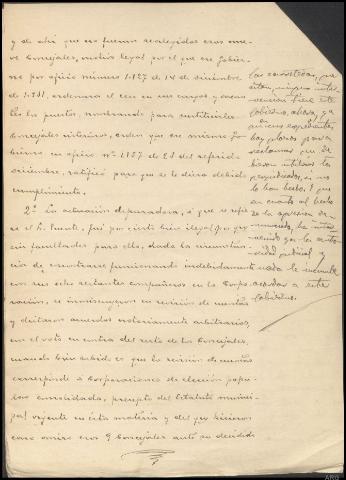 y de ahí que no fueron reelegidos esos nue-
ve Concejales, motivo legal por el que ese Gobier-
no por oficio número 1.127 de 12 de diciembre
de 1.931, ordenara el cese en sus cargos y
los puestos, nombrando para sustituirles
Concejales interinos, orden que ese mismo Go-
bierno en oficio nº 1.157 de 21 del referido
diciembre, ratificó para que se le diera debido
cumplimiento.
2º La actuación depuradora, a que se refie-
re el Sr. Puente, fué por cierto bien ilegal, pues
sin facultades para ello, dada la circunstan-
cia de encontrarse funcionando indebidamente
con sus ocho restantes compañeros en la Corpo-
ración, se inmiscuyeron en revisión de cuentas
y dictaron acuerdos notoriamente arbitrarios,
con el voto en contra del resto de los Concejales,
cuando bien sabido es que la revisión de cuentas
corresponde a Corporaciones de elección popu-
lar consolidada, precepto del Estatuto munici-
pal vigente en ésta materia y del que hicieron
caso omiso esos 9 Concejales ante su decidido
que
ninguna inter-
vención tiene este
Gobierno ahora, ya
hay plazos para
reclamar que de-
bieron utilizar los
perjudicados, si no
lo han hecho. Y que
en cuanto al hecho
de la agresión de-
nunciado, ha inter-
venido ya la auto-
ridad judicial y
nada le incumbe
acordar a este
Gobierno.